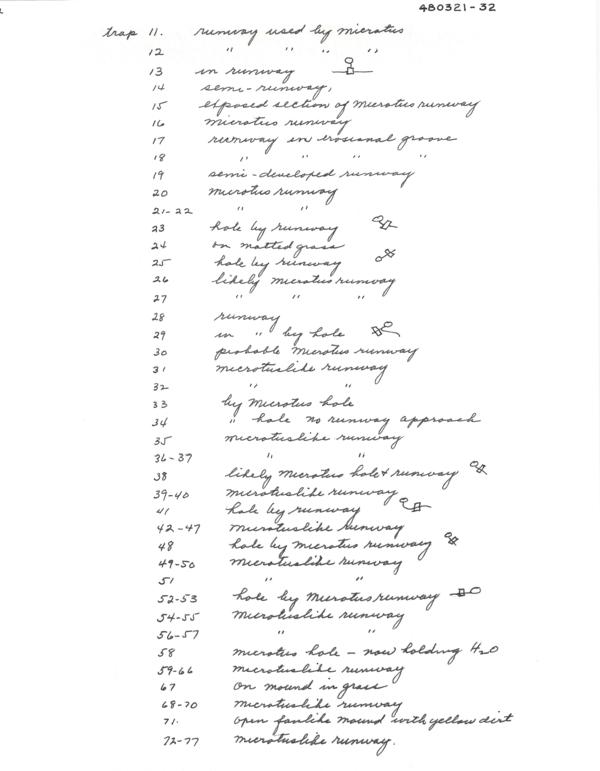 480321-32
trap 11. runway used by microtus
12 " " " "
13 in runway
14 semi-runway,
15 exposed section of Microtus runway
16 microtus runway
17 runway in erosional groove
18 " " " "
19 semi-developed runway
20 microtus runway
21-22 " "
23 hole by runway
24 on matted grass
25 hole by runway
26 likely microtus runway
27 " " "
28 runway
29 in " by hole
30 probable Microtus runway
31 microtuslike runway
32 " "
33 by Microtus hole
34 " hole no runway approach
35 microtuslike runway
36-37 " "
38 likely Microtus hole & runway
39-40 microtuslike runway
41 hole by runway
42-47 microtuslike runway
48 hole by microtus runway
49-50 microtuslike runway
51 " "
52-53 hole by Microtus runway
54-55 Microtuslike runway
56-57 " "
58 microtus hole - now holding H2O
59-66 microtuslike runway
67 on mound in grass
68-70 microtuslike runway
71. open fanlike mound with yellow dirt
72-77 microtuslike runway.